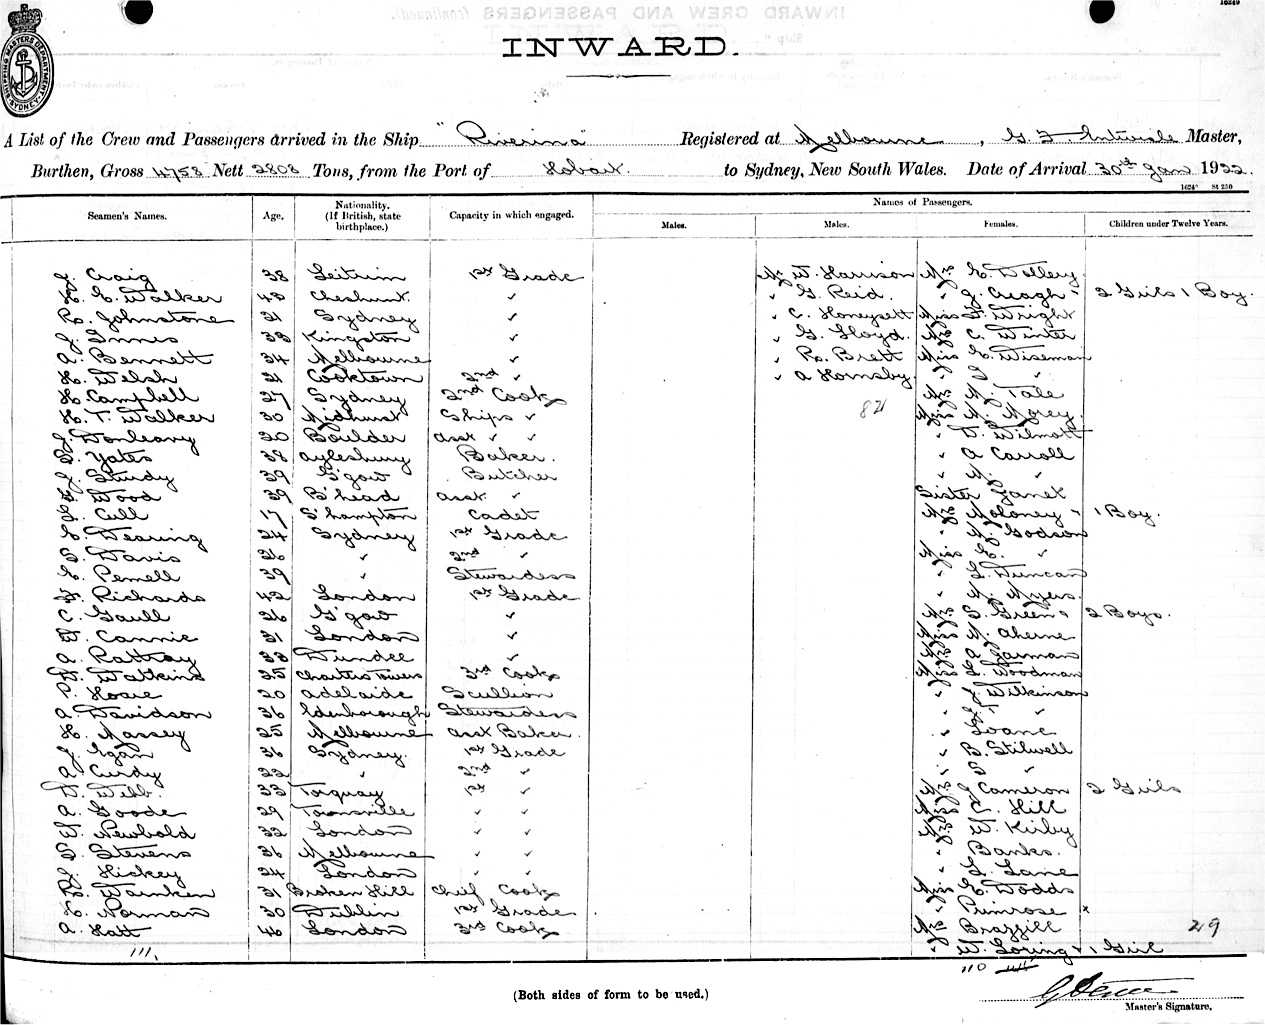 INWARD CREW AND PASSENGERS (continued).
16249
SHIPPING MASTERS DEPARTMENT SYDNEY
INWARD.
A List of the Crew and Passengers arrived in the Ship "Riverina" Registered at Melbourne, G. F. Master,
Burthen, Gross 4758 Nett 2808 Tons, from the Port of Hobart to Sydney, New South Wales. Date of Arrival 30th Jan 1922.
1624 St 230
Seamen's Names. Age. Nationality. (If British, state birthplace.) Capacity in which engaged. Names of Passengers.
Males. Males. Females. Children under Twelve Years.
J. Craig 38 Leitrim 1st Grade Mr W. Harrison Mrs E.
H. E. Walker 43 Cheshunt " " G. Reid " J. Creagh " 2 Girls 1 Boy.
R. Johnstone 21 Sydney " " C. Honeysett Miss F. Wright
J. Innes 33 Kingston " " G. Lloyd Mrs C. Winter
A. Bennett 34 Melbourne " " R. Brett Miss E. Wiseman
H. Welsh 21 Cooktown 2nd " " A Hornsby " "
H Campbell 27 Sydney 2nd Cook Mrs M. Tale
H. T. Walker 30 Midhurst Ships " 821 M. Morey
J. Donleavy 20 Boulder asst " " " D. Wilmott
S. Yates 38 Aylesbury Baker. " A Carroll
J. Sturdy 39 G'gow Butcher " M. "
Wood 39 B'head asst " Sister Janet
Cull 17 S'hampton Cadet Mrs Moloney " 1 Boy.
E. Dearing 24 Sydney 1st Grade " M. Godson
S. Davis 26 " 2nd " Miss E. "
E. Pemell 39 " Stewardess " G. Duncan
F. Richards 42 London 1st Grade " M. Myers.
C. Gaull 26 G'gow " Mrs S. Green " 2 Boys.
W. Cannie 31 London " M. Aherne
A. Rattray 33 Dundee " A. Garman
D. Watkins 35 Charters Towers 3rd Cook L. Woodman
P. Hosie 20 Adelaide Scullion " J. Wilkinson
A. Davidson 36 Edenborough Stewardess " J. "
H. Massey 25 Melbourne Asst Baker " Loane
J. Egan 36 Sydney. 1st Grade " B. Stilwell
A. Curdy 22 " 2nd " " S "
D. Webb. 33 Torquay 1st " Mrs J Cameron 2 Girls
A. Goode 29 Townsville " " C. Hill
W. Newbold 32 London " " W. Kirby
S. Stevens 36 Melbourne " " " Banks.
J. Hickey 24 London " " " L. Lane
R. 31 Broken Hill Chief Cook Miss E. Dodds
H. Norman 30 Dublin 1st Grade " Primrose x
A. Hatt 46 London 3rd Cook Mrs Brazzill 29
111. " W. Loring " 1 Girl
110
(Both sides of form to be used.)
Master's Signature.